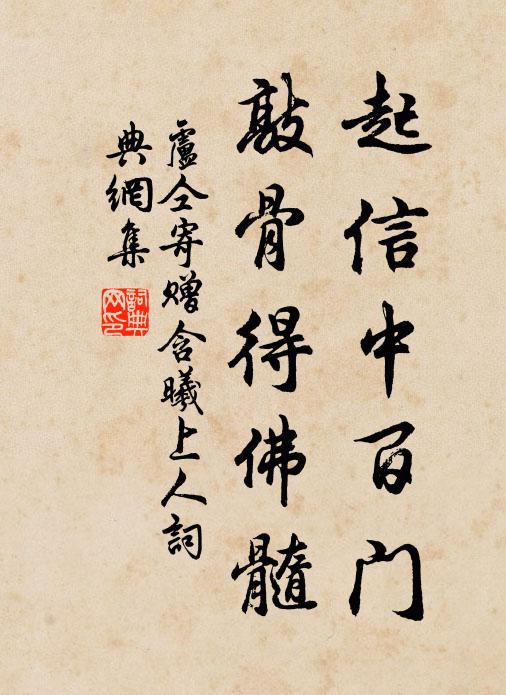 起信中百门
敲骨得佛髓
盧仝寄赠含曦上人詞
典網集
詞典网印